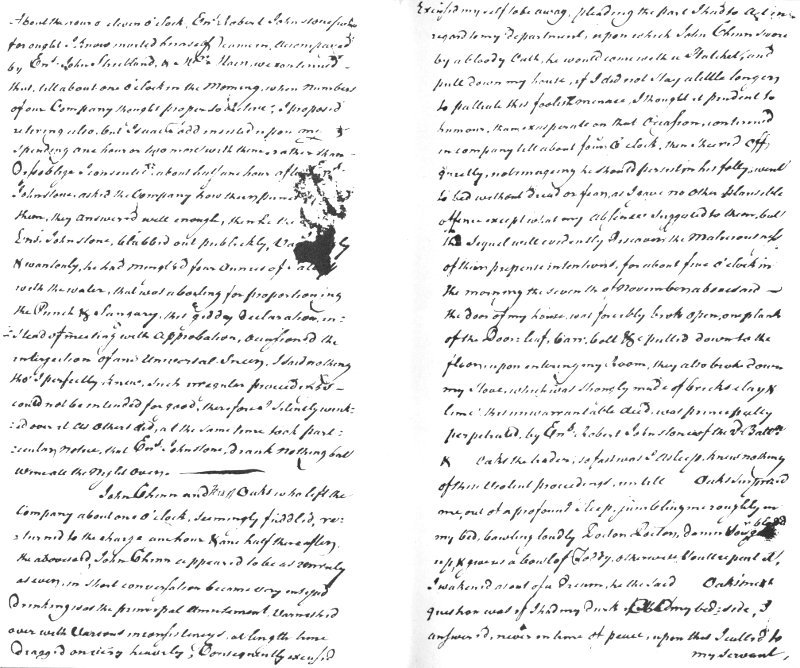 About the hour o eleven o'Clock, Ens. Robert Johnstone, who
for ought I know invited himself, came in, accompaned
by Ens. John Maitland, & Mr. Hair, we continued
thus, till about one o'Clock in the Morning, when numbers
of our Company thought proper to Retire; I proposed
retiring also, but Isaac add insisted upon my
Spending one hour or two more with them, rather than
Dissoblige I consented: about half ane hour after Ens.
Johnstone, asked the Company how their pun
them, they answered well enough, then he
Ens. Johnstone, blabbed out publickly,
& wantonly, he had mingled four Ounces of
with the water, that was a boyling for proportioning
the Punch & Sangary, this giddy Declaration, in-
-stead of meeting with Approbation, occasioned the
interjection of ane Universal Sneer, I said nothing
tho' I perfectly knew, such irregular proceedings
could not be intended for good, therefore I Silently wink-
-ed over it as others did, at the same time took part-
-icular Notice, that Ens. Johnstone, drank nothing but
Wine all the Night Over.
John Chinn and Oaks who left the
Company about one o'Clock, Seemingly fuddled, re-
-turned to the charge ane hour & ane half thereafter,
the abovesaid, John Chinn appeared to be as unruly
as ever, in short conversation became very insipid
drinking was the principal Amusement, Varnished
over with Various inconsistencys, at length time
dragged on very heavely; Consequently excused
Excused myself to be away, pleading the part I had to Act in
regard to my Department, upon which John Chinn swore
by a bloody Oath, he would come with a Hatchet, and
pull down my house, if I did not Stay a little longer,
to palliate this foolish menace, I thought it prudent to
humour, than exasperate on that Occasion, continued
in company till about four o'Clock, then Sheered off,
quietly, not imagening he should persist in his folly, went
to bed without Dread or fear, as I gave no other plausible
offence except what my Absence Suggested to them, but
the Sequel will evidently Discover the Maliciousness
of their prepense intentions, for about five o'Clock in
the morning the seventh of November abovesaid
the door of my house, was forcibly broke open, one plank
of the Door: leaf, barr, bolt &c pulled down to the
floor, upon entering my Room, they also broke down
my Stove, which was Strongly made of bricks clay &
lime: this unwarrantable deed, was principally
perpetrated, by Ens. Robert Johnstone of the Batt.
& Oaks the leader, so fast was I asleep, knew nothing
of their Violent proceedings, untill Oaks Surprised
me, out of a profound Sleep, jumbling me roughly in
my bed, bawling loudly Doctor Doctor, damn your blood
up & give us a bowl of Toddy, otherwise, You'll repent it,
I wakened as out of a Dream, he the Said Oaks next
question was if I had my Durk at my bed: side, I
answered, never in time of peace, upon this I called to
my Servant,